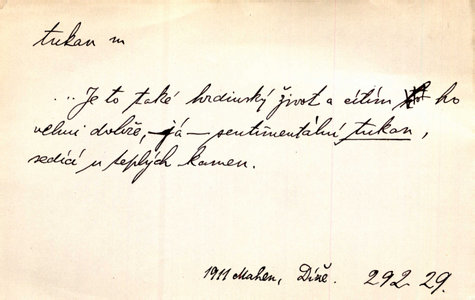 tukan m
... Je to také hrdinský život a cítím ho
velmi dobře, – já – sentimentální tukan,
sedící u teplých kamen.
1911 Mahen, Díže. 292 29.